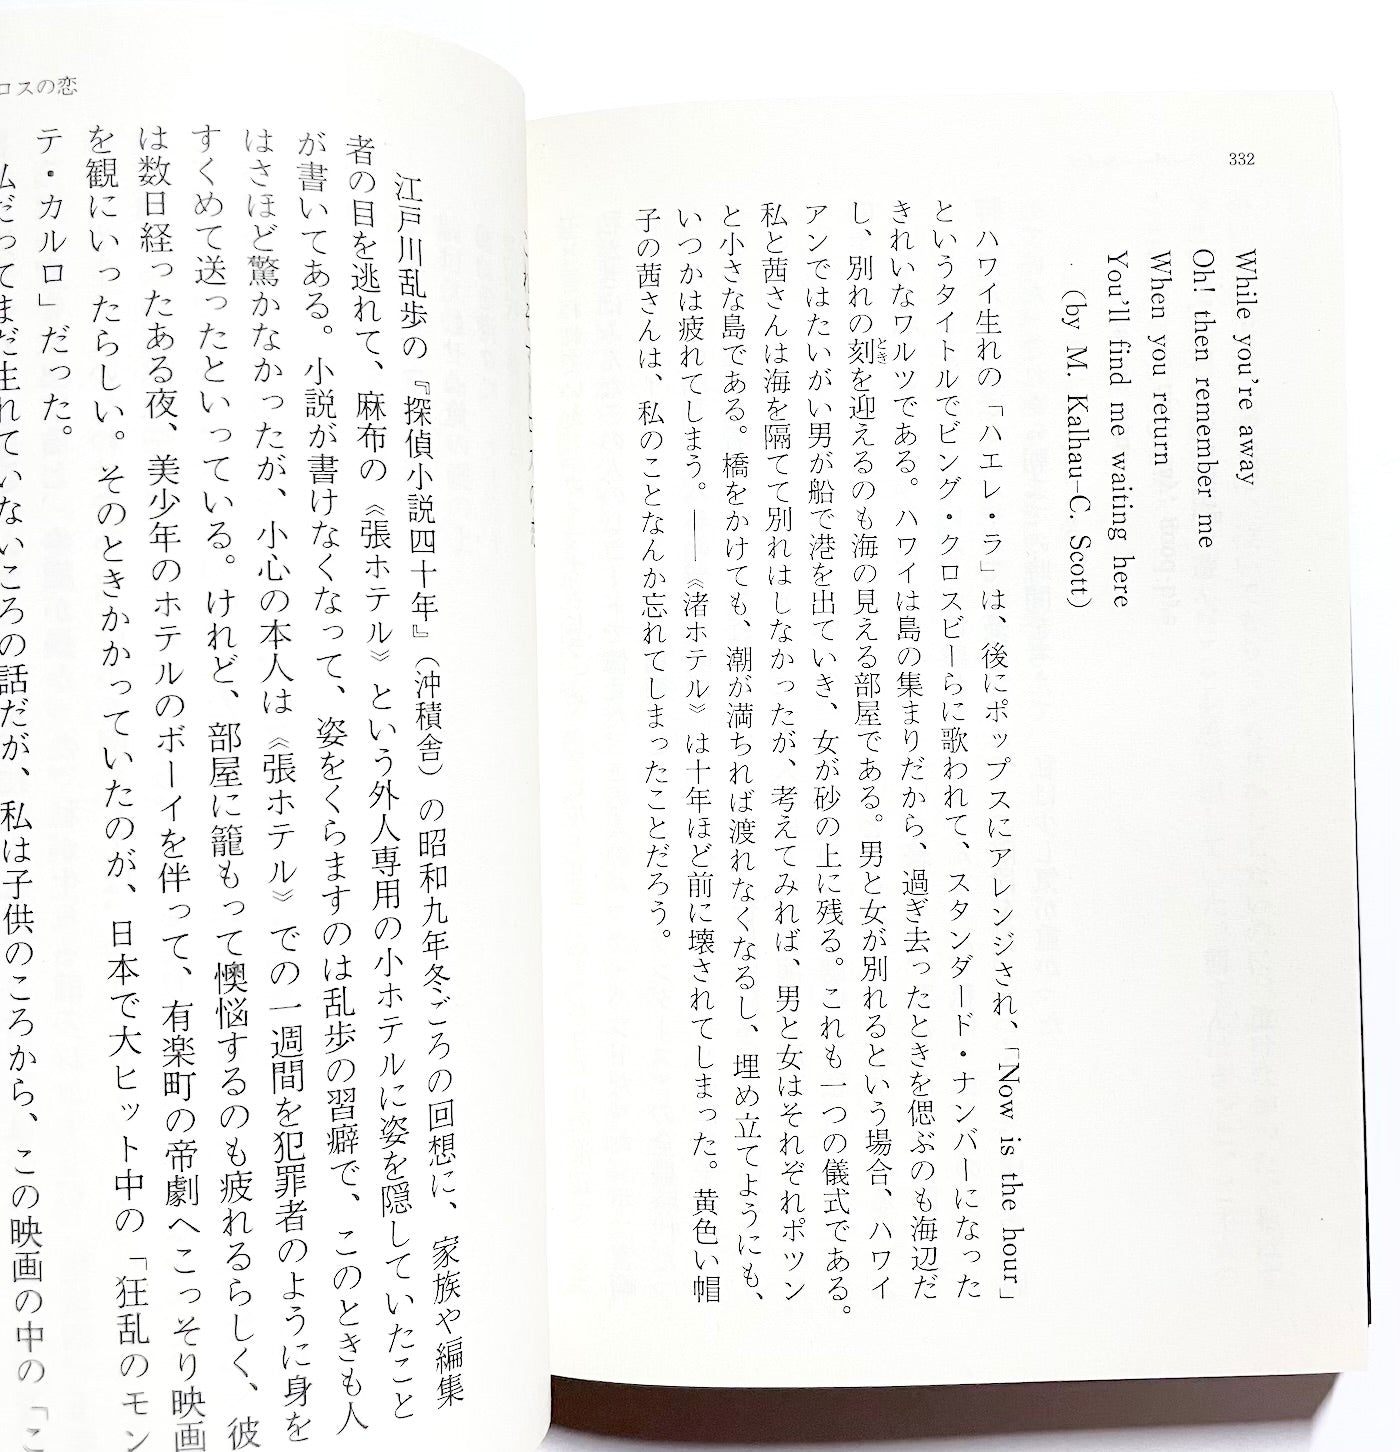 332
While you're away
Oh! then remember me
When you return
You'll find me waiting here
(by M. Kalhau–C. Scott)
ハワイ生れの「ハエレ・ラ」は、後にポップスにアレンジされ、「Now is the hour」
というタイトルでビング・クロスビーらに歌われて、スタンダード・ナンバーになった
きれいなワルツである。ハワイは島の集まりだから、過ぎ去ったときを偲ぶのも海辺だ
し、別れの刻を迎えるのも海の見える部屋である。男と女が別れるという場合、ハワイ
とき
アンではたいがい男が船で港を出ていき、女が砂の上に残る。これも一つの儀式である。
私と茜さんは海を隔てて別れはしなかったが、考えてみれば、男と女はそれぞれポツン
と小さな島である。橋をかけても、潮が満ちれば渡れなくなるし、埋め立てようにも、
いつかは疲れてしまう。――《渚ホテル》は十年ほど前に壊されてしまった。黄色い帽
子の茜さんは、私のことなんか忘れてしまったことだろう。
ロスの恋
江戸川乱歩の『探偵小説四十年』（沖積舎）の昭和九年冬ごろの回想に、家族や編集
者の目を逃れて、麻布の《張ホテル》という外人専用の小ホテルに姿を隠していたこと
が書いてある。小説が書けなくなって、姿をくらますのは乱歩の習癖で、このときも人
はさほど驚かなかったが、小心の本人は《張ホテル》での一週間を犯罪者のように身を
すくめて送ったといっている。けれど、部屋に籠もって懊悩するのも疲れるらしく、彼
は数日経ったある夜、美少年のホテルのボーイを伴って、有楽町の帝劇へこっそり映画
を観にいったらしい。そのときかかっていたのが、日本で大ヒット中の「狂乱のモン
テ・カルロ」だった。
私だってまだ生れていないころの話だが、私は子供のころから、この映画の中の「こ